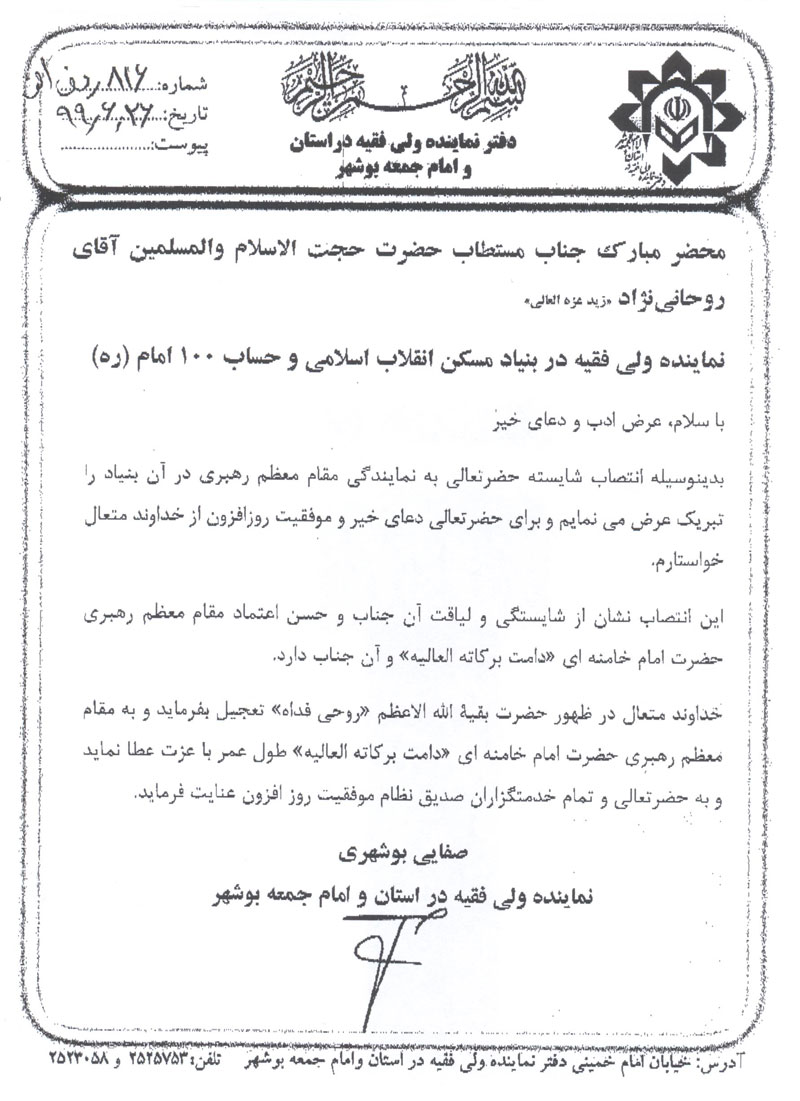 بسم الله الرحمن الرحیم
دفتر نماینده ولی فقیه در استان
و امام جمعه بوشهر
شماره: ۸۱۶
تاریخ: ۹۹,۶,۲۶
پیوست:
محضر مبارک جناب مستطاب حضرت حجت الاسلام والمسلمین آقای
روحانی‌نژاد «زید عزه العالی»
نماینده ولی فقیه در بنیاد مسکن انقلاب اسلامی و حساب ۱۰۰ امام (ره)
با سلام، عرض ادب و دعای خیر
بدینوسیله انتصاب شایسته حضرتعالی به نمایندگی مقام معظم رهبری در آن بنیاد را
تبریک عرض می نمایم و برای حضرتعالی دعای خیر و موفقیت روزافزون از خداوند متعال
خواستارم.
این انتصاب نشان از شایستگی و لیاقت آن جناب و حسن اعتماد مقام معظم رهبری
حضرت امام خامنه ای «دامت برکاته العالیه» و آن جناب دارد.
خداوند متعال در ظهور حضرت بقیة الله الاعظم «روحی فداه» تعجیل بفرماید و به مقام
معظم رهبری حضرت امام خامنه ای «دامت برکاته العالیه» طول عمر با عزت عطا نماید
و به حضرتعالی و تمام خدمتگزاران صدیق نظام موفقیت روز افزون عنایت فرماید.
صفایی بوشهری
نماینده ولی فقیه در استان و امام جمعه بوشهر
آدرس: خیابان امام خمینی دفتر نماینده ولی فقیه در استان وامام جمعه بوشهر تلفن: ۲۵۲۵۷۵۳ و ۲۵۲۳۰۵۸